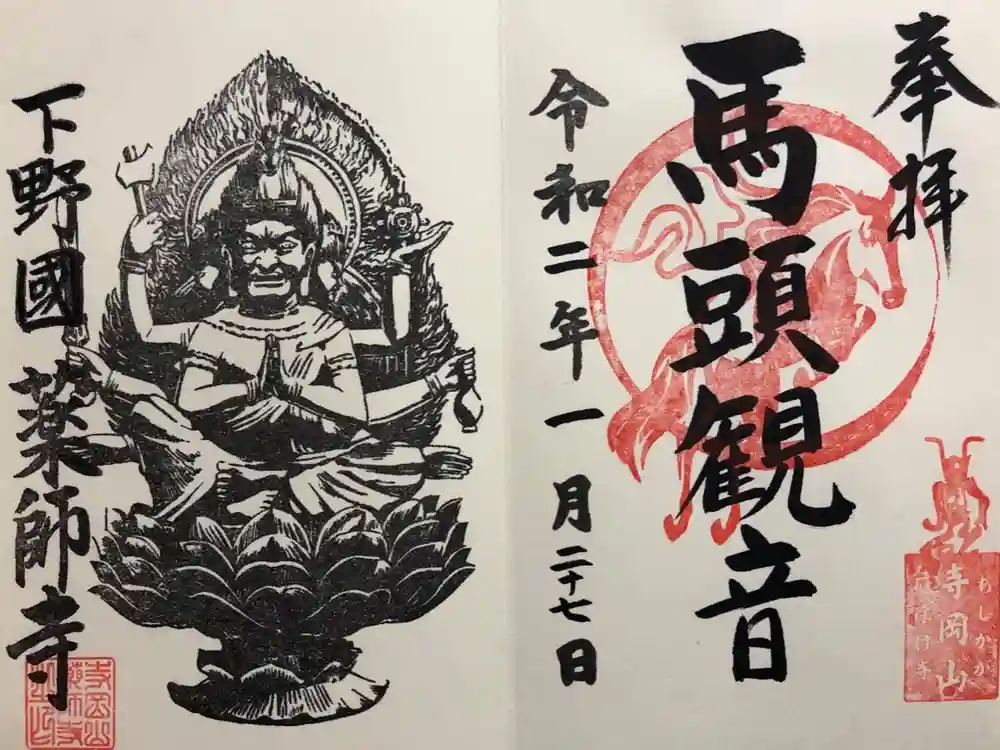 奉拝
馬頭観音
令和二年一月二十七日
寺岡山
あしかが
下野國薬師寺